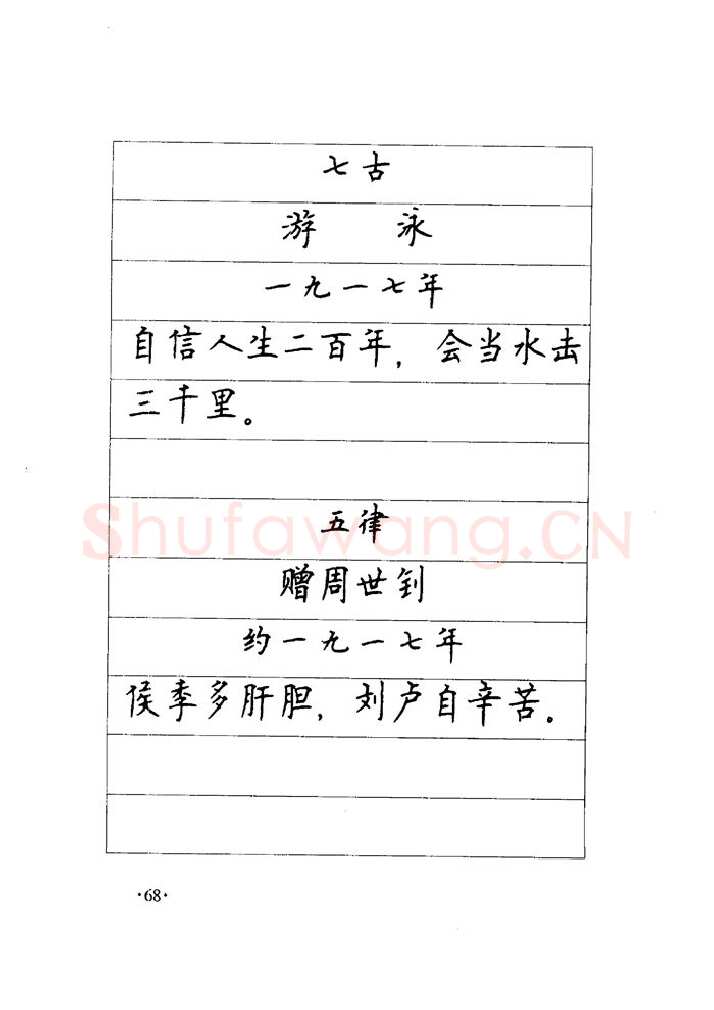 七古
游 泳
一九一七年
自信人生二百年，会当水击
三千里。
Shufawang.CN
五律
赠周世钊
约一九一七年
侯季多肝胆，刘卢自辛苦。
·68·